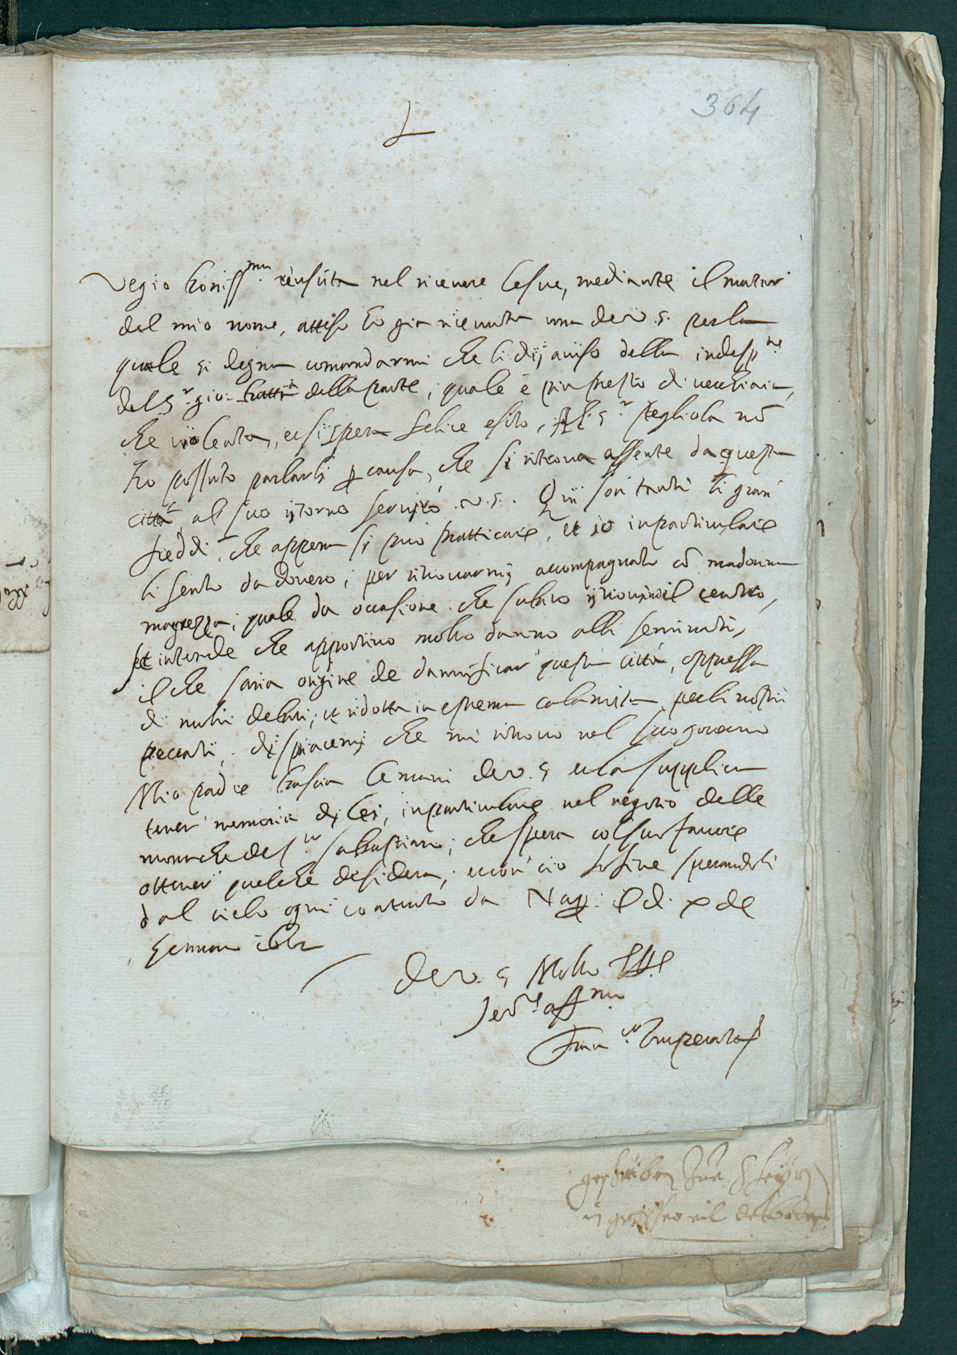 364
Vegio boniss.mo reusita nel ricevere le sue, mediante il mutar
del mio nome, atteso ho gia ricevuta una de v. s. per la
quale si degna comandarmi che li dij aviso della indisp.ne
del S.r gio: batt.a della porta, quale è più presto di vecchiaia,
che violenta, et si spera felice esito, Al S.r stegliola nõ
ho possuto parlarli p causa, che si ritrova assente da questa
città, al suo ritorno servirò v. s. Quì son tanti li gran
freddi, che appena si puo pratticare, et io in particulare
li sento da dovero, per ritrovarmi accompagnato cõ madonna
magrezza, quale da occasione che subito ritrovino il centro,
Et intende che apportino molto danno alli seminati,
il che saria origine de dannificar questa città, oppressa
di molti debiti, et ridotta in estrema calamità per li nostri
peccati, dispiacemi che mi ritrovo nel suo governo
Mio padre bascia le mani de v. s. et la supplica
tener memoria di lei, in particulare nel negotio delle
monache del s.r; che spera col suo favore
ottener quelche desidera, et con cio fo fine pregandoli
dal cielo ogni contento da Nap. il dì x de
Gennaro
De v. s. Molto Ill.e
Ser.re aff.mo
Fran.co Imperato